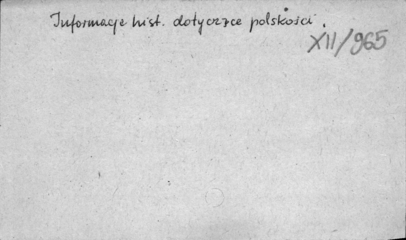 Informacje hist. dotyczące polskości.
XII/965